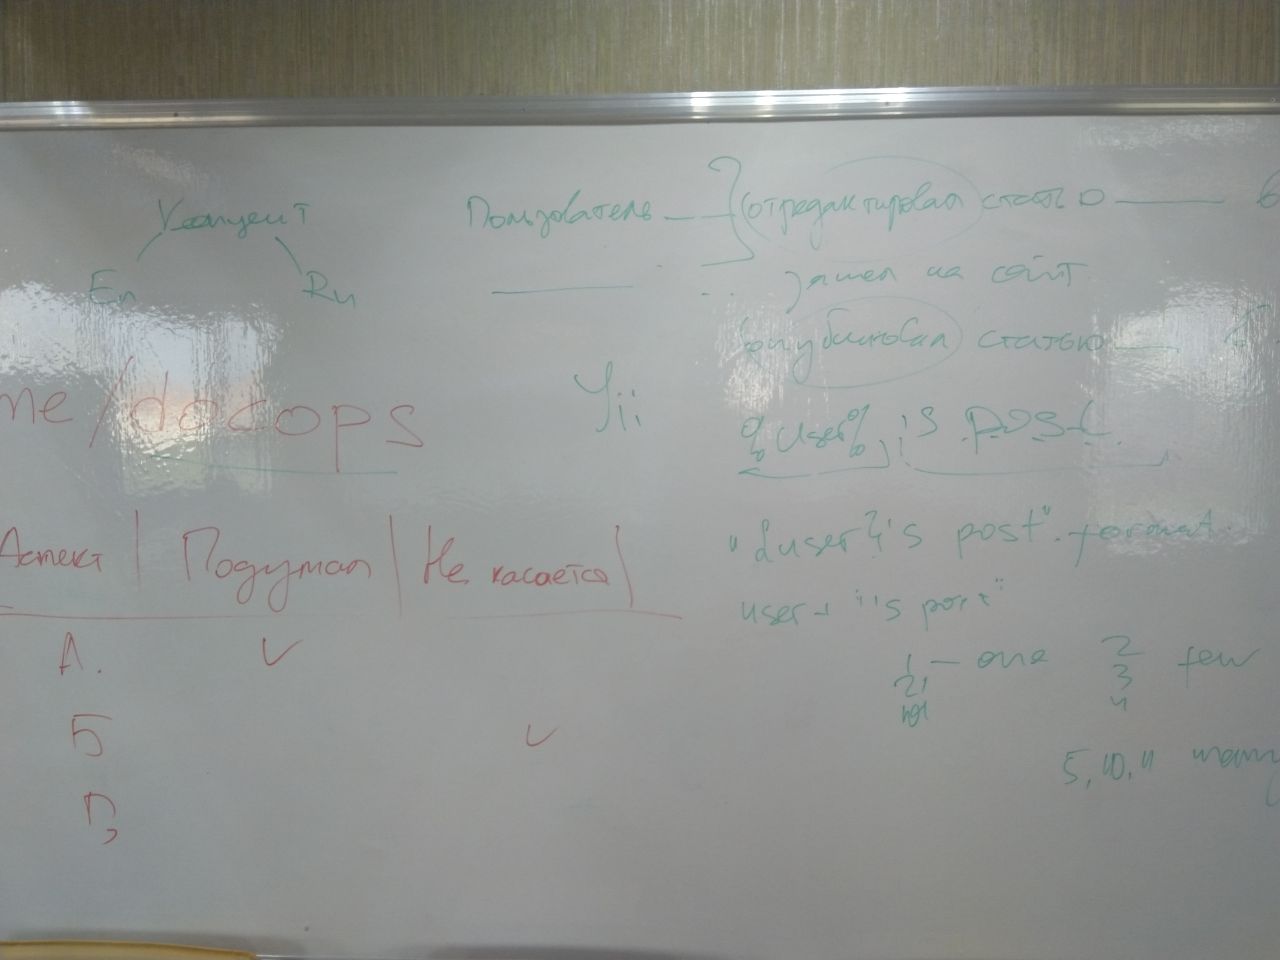 En Ru
Пользователь отредактировал статью в
зашел на сайт
опубликовал статью в
me/docops
Yii
%user%'s post
Аспект Подумал Не касается
"{user}'s post".format
user + "'s post"
А. ✓
Б ✓
1 — one 2 few
21 3
101 4
5, 10, 11 many